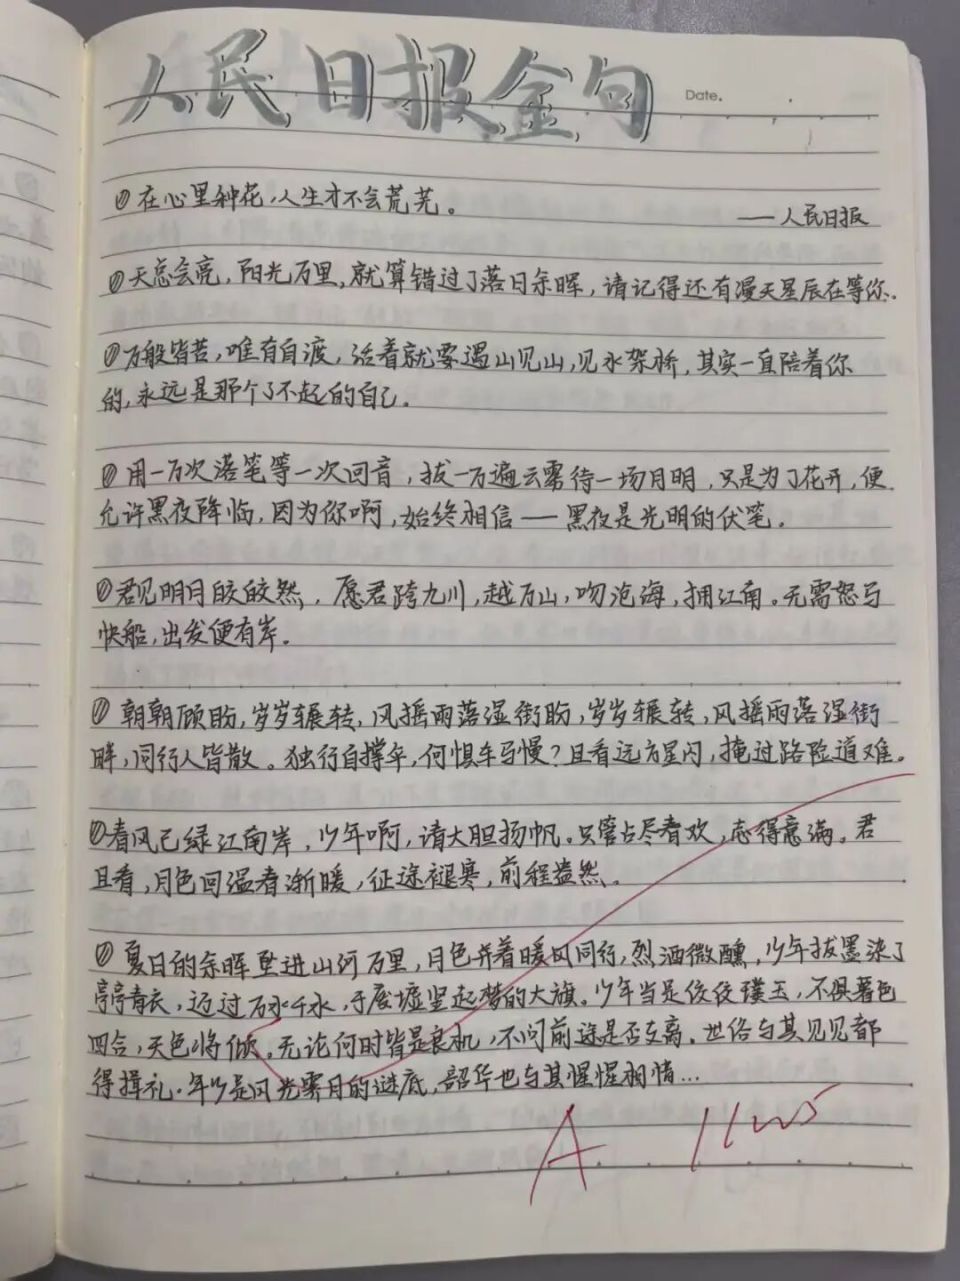 人民日报金句
Date.
在心里种花,人生才不会荒芜。
——人民日报
天总会亮,阳光万里,就算错过了落日余晖,请记得还有漫天星辰在等你.
万般皆苦,唯有自渡,活着就要遇山见山,见水架桥,其实一直陪着你
的,永远是那个了不起的自己.
用一万次落笔等一次回音,拔一万遍云雾待一场月明,只是为了花开,便
允许黑夜降临,因为你啊,始终相信——黑夜是光明的伏笔.
君见明月皎皎然,愿君跨九川,越万山,吻沧海,拥江南。无需怒马
快船,出发便有岸.
朝朝顾盼,岁岁辗转,风摇雨落湿街盼,岁岁辗转,风摇雨落湿街
畔,同行人皆散。独行自撑伞,何惧车马慢?且看远方星闪,掩过路险道难。
春风已绿江南岸,少年啊,请大胆扬帆。只管占尽春欢,志得意满。君
且看,月色回温春渐暖,征途褪寒,前程盎然.
夏日的余晖坠进山河万里,月色弄着暖风同行,烈酒微醺,少年拔墨染了
亭亭青衣,迈过万水千水,于废墟竖起梦的大旗。少年当是佼佼璞玉,不惧暮色
四合,天色将倾.无论何时皆是良机,不问前途是否支离.世俗与其见见都
得揖礼.年少是风光霁月的谜底,韶华也与其惺惺相惜...
A